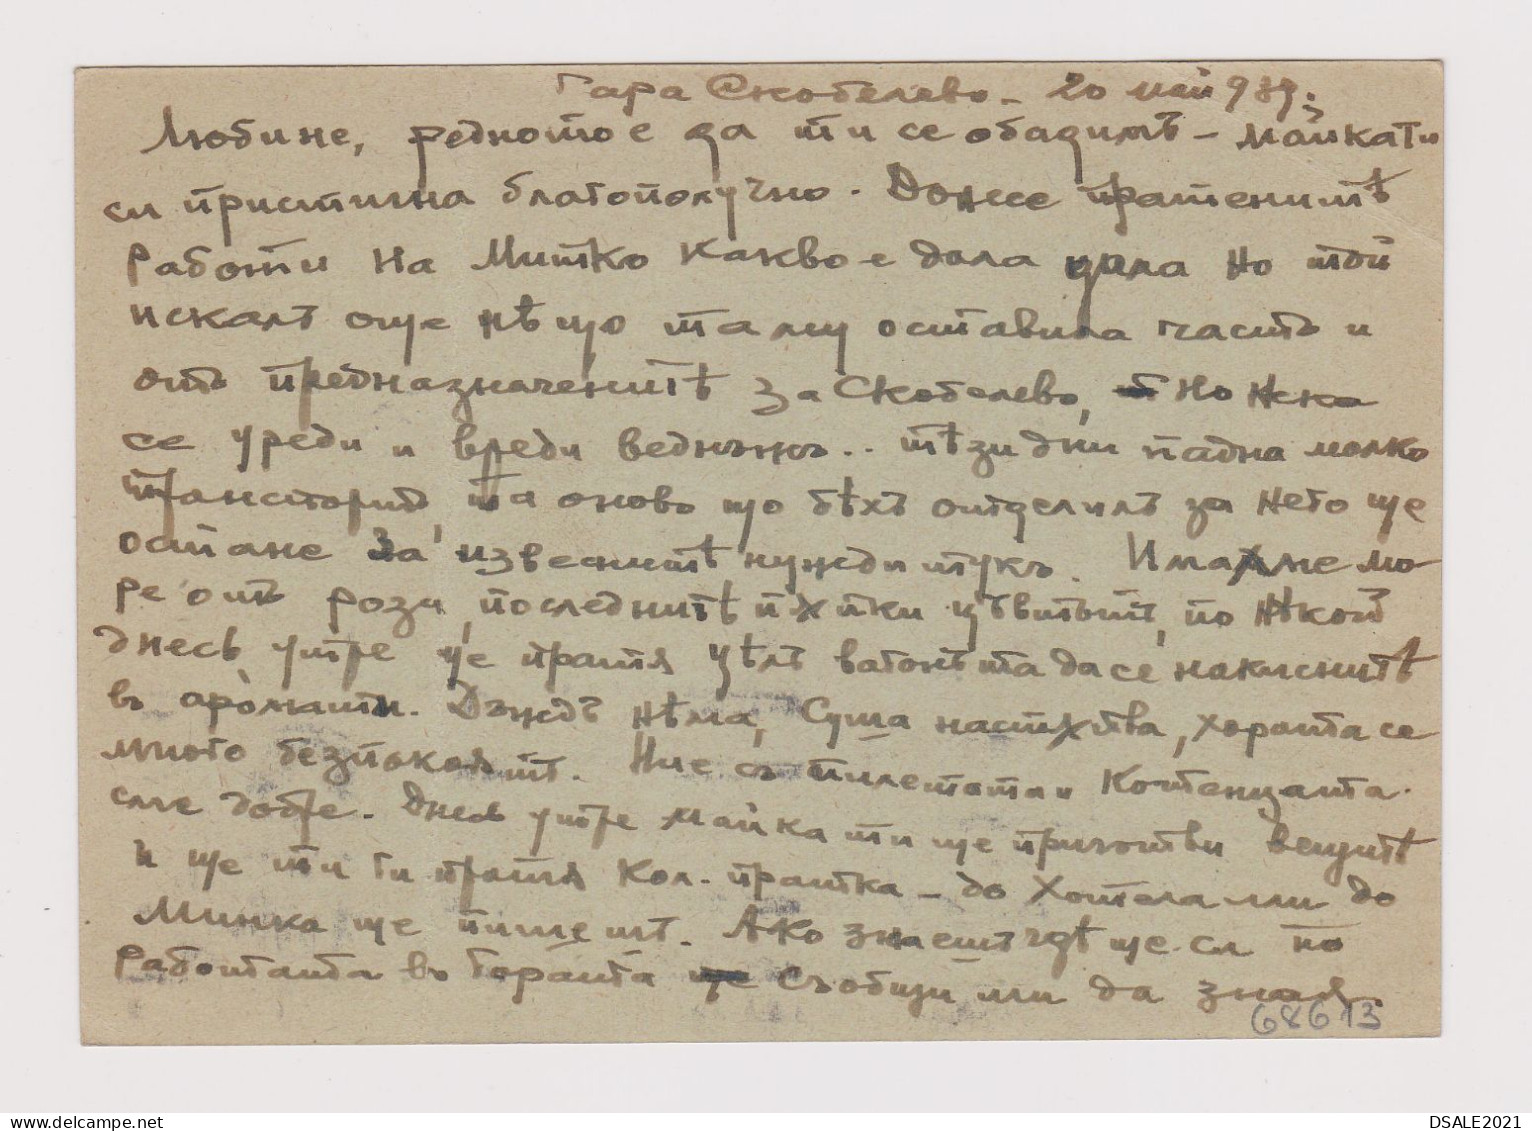 Гара Скобелево - 20 май 939.
Любине, редното е да ти се обадимъ - майка ти
си пристигна благополучно. Донесе пратенитѣ
работи на Митко какво е дала дала но той
искалъ още нѣщо та му оставила часть и
отъ предназначенитѣ за Скобелево, но нека
се уреди и вреди веднъжъ.. тѣзи дни падна малко
транспортъ, та онова що бѣхъ отделилъ за него ще
остане за извеснитѣ нужди тукъ. Имахме мо-
ре отъ рози, последнитѣ пѫпки цъвтятъ, по нѣкой
днесъ утре ще пратя цѣлъ вагонъ та да се накиснитѣ
въ аромати. Дъждъ нѣма, Суша настѫпва, хората се
много безпокоятъ. Ние съ пилетата и Котенцата
сме добре. Днесъ утре майка ти ще приготви вещитѣ
и ще ти ги пратя Кол. пратка - до Хотела или до
Минка ще пишешъ. Ако знаешъ гдѣ ще си по
работата въ Гората съобщи ми да зная.
68613
DSALE2021